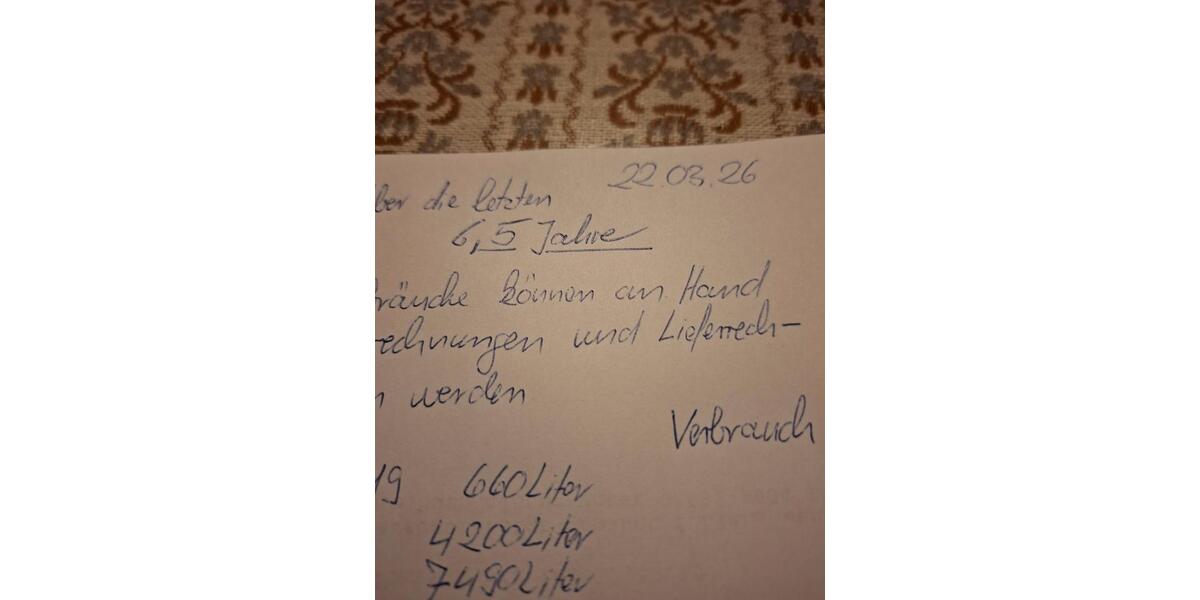 22.03.26
ber die letzten
6,5 Jahre
räuche können an Hand
rechnungen und Lieferrech-
n werden
Verbrauch
19 660 Liter
4200 Liter
7490 Liter